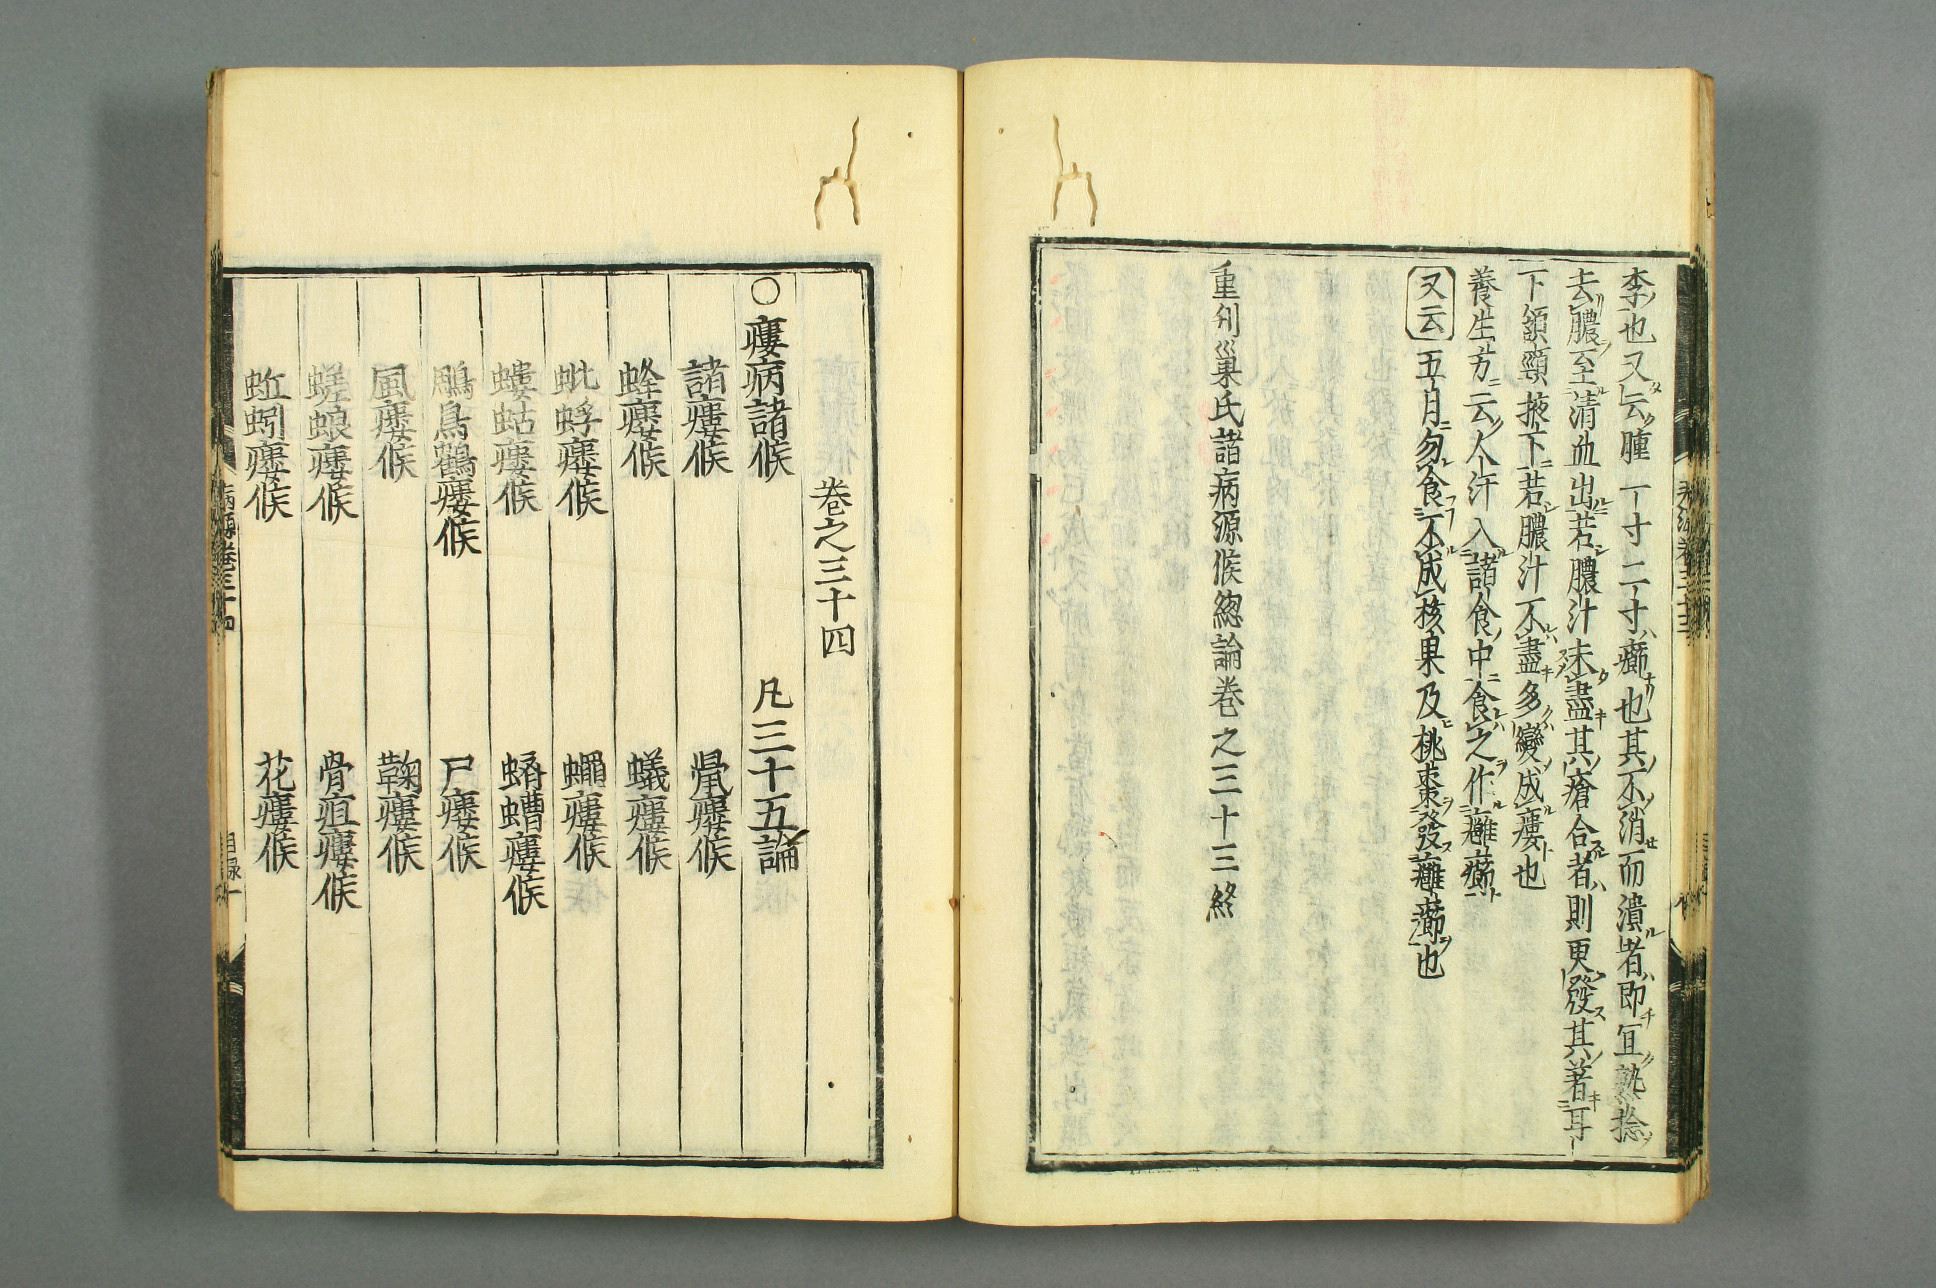 李也又云腫一寸二寸癤也其不消而潰者即冝熟捻
去膿至清血出若膿汁未盡其瘡合者則更發其著耳
下頷頸掖下若膿汁不盡多變成瘻也
養生方云人汗入諸食中食之作癰癤
又云五月勿食不成核果及桃棗發癰癤也
重刊巢氏諸病源候總論巻之三十三終
巻之三十四
○瘻病諸候 凡三十五論
諸瘻候 𪖌瘻候
蜂瘻候 蟻瘻候
蚍蜉瘻候 蠅瘻候
螻蛄瘻候 蠐螬瘻候
鵰鳥鸖瘻候 尸瘻候
風瘻候 鞠瘻候
蜣蜋瘻候 骨疽瘻候
蚯蚓瘻候 花瘻候
病源巻三十四 目録一